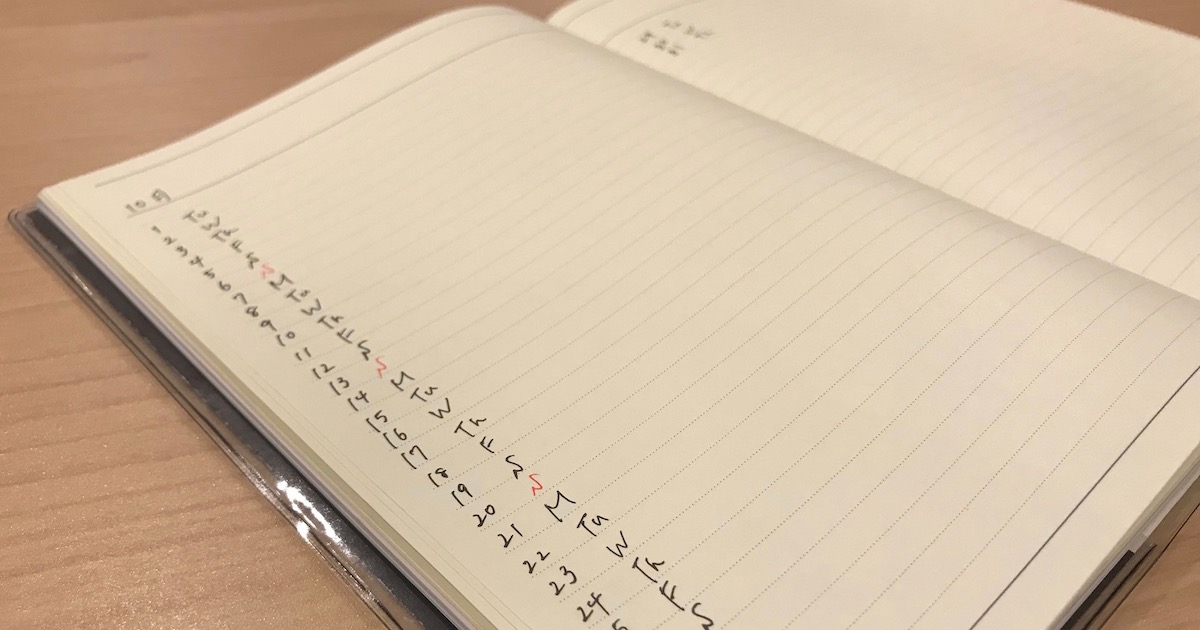 10月
1 Tu
2 W
3 Th
4 F
5 S
6 S
7 M
8 Tu
9 W
10 Th
11 F
12 S
13 S
14 M
15 Tu
16 W
17 Th
18 F
19 S
20 S
21 M
22 Tu
23 W
24 Th
5 F
S